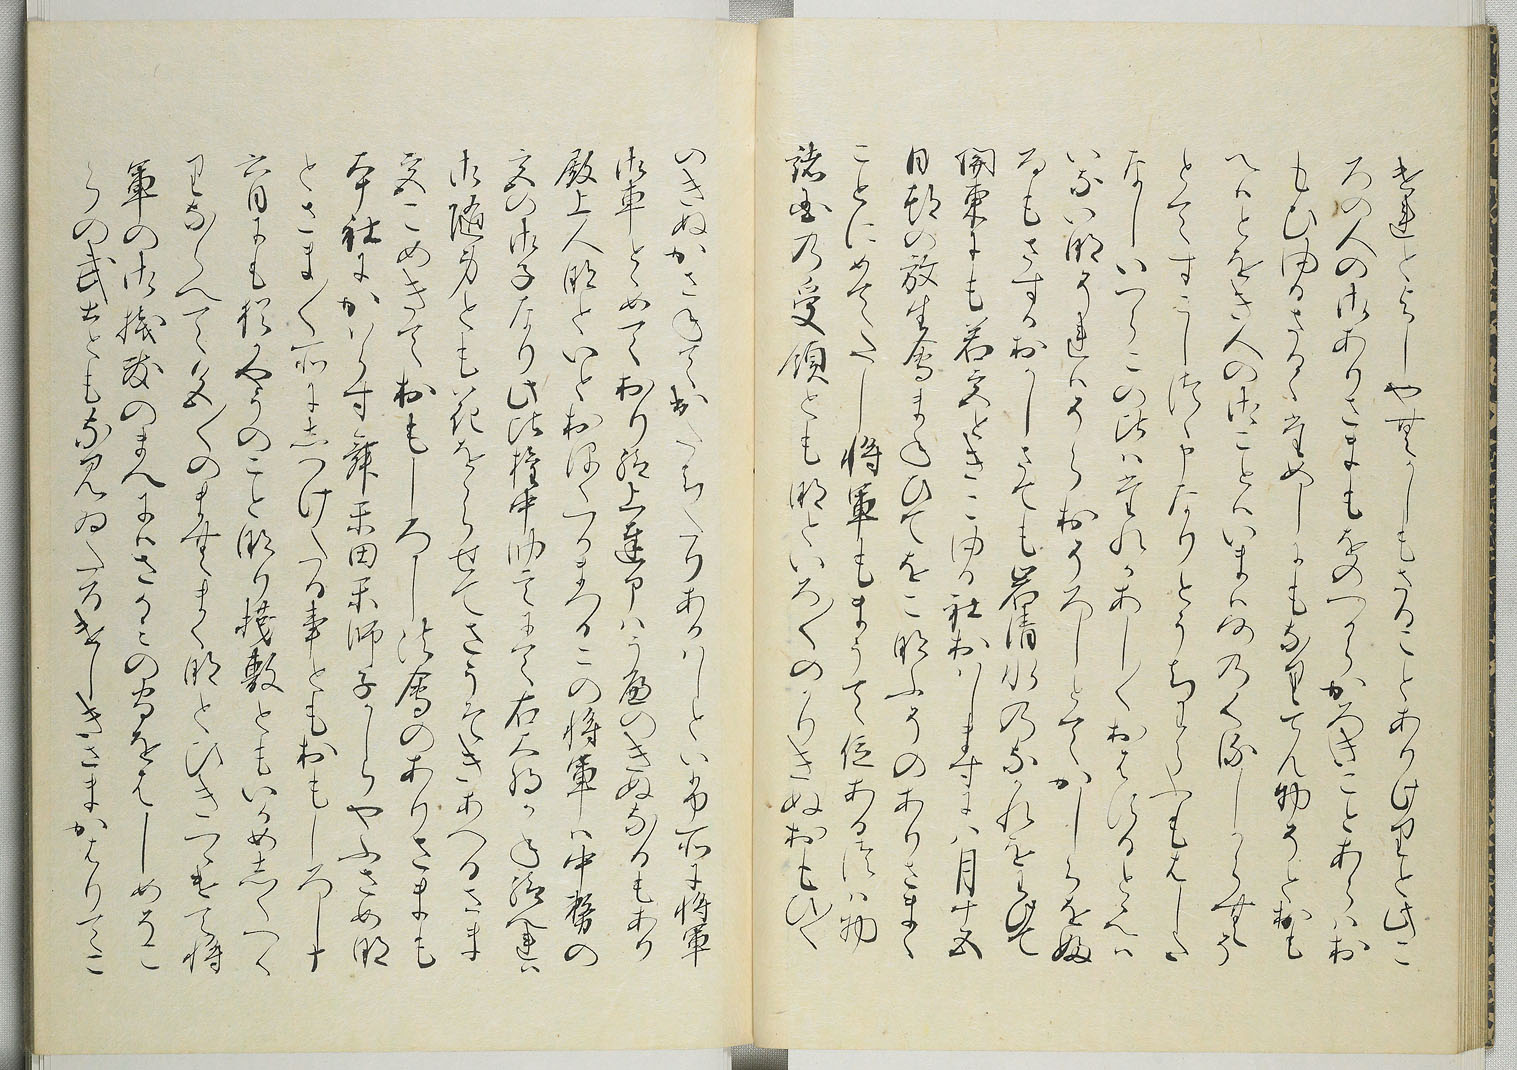 けれとよしやせめてしもさることありけりと此こ
ろの人の御ありさまもをのつからかろきことあらはお
もひゆるさるゝためしにもなりてん物そとおも
へはとをき人の御ことはいまは何のくるしからむそ
とてすこしつゝ申なりとうちわらふもはした
なしいつらこの比はたれかあし〱おはするととへは
いない那それはそらおそろしとてかしらをふ
るもさすかおかしさても石清水のなかれをわけて
関東にも若宮ときこゆる社おはしますに八月十五
日都の放生會まねひてをこなふそのありさま
ことにめてたし将軍もまうて位あるつは物
諸国の受領ともなといろ〱のかりきぬおもひ〱
のきぬかさねて出たちたりあかはしといふ所に将軍
御車とめており給上達部はうへのきぬなるもあり
殿上人なといとおほくつかまつるこの将軍は中務の
宮の御子なり此比権中納言にて右大将かね給へれは
御随身とも花をおらせてさうそきあへるさま
宮こめきておもしろし法會のありさまも
本社にかはらす舞楽田楽師子かしらやふさめな
とさま〱所にしつけたる事ともおもしろし十
六日にも猶かやうのことなり桟敷ともいかめしくつく
りならへて色〱のまむまくなとひきつゝけて将
軍の御桟敷のまへにはさかみの守をはしめそこ
らの武士ともなみゐたるけしきさまかはりてこ